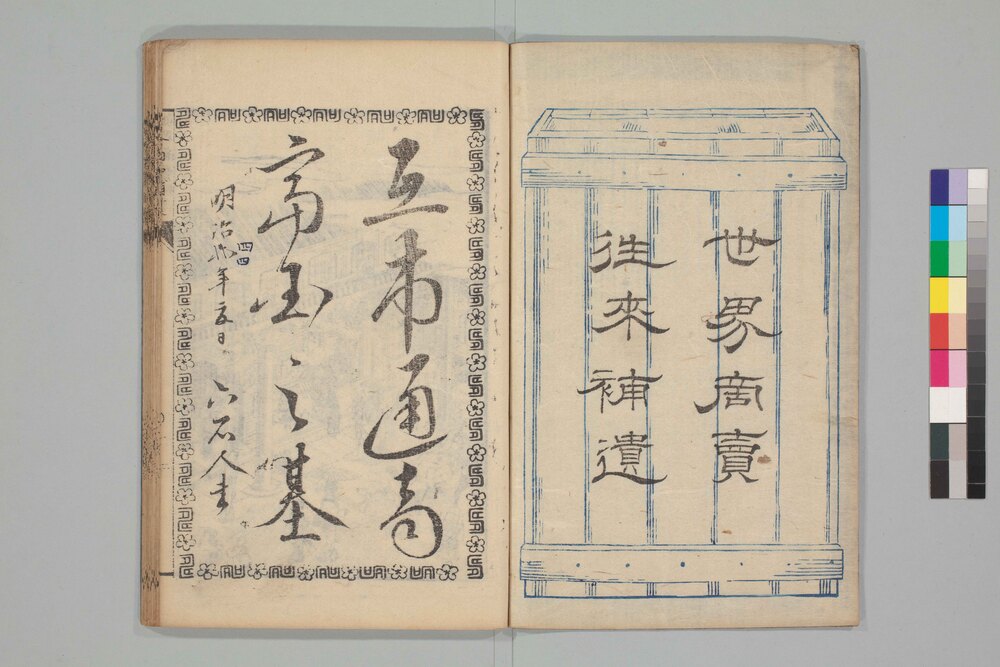 世界商賣
往來補遺
互市通商
富国之基
明治
年
六石人書